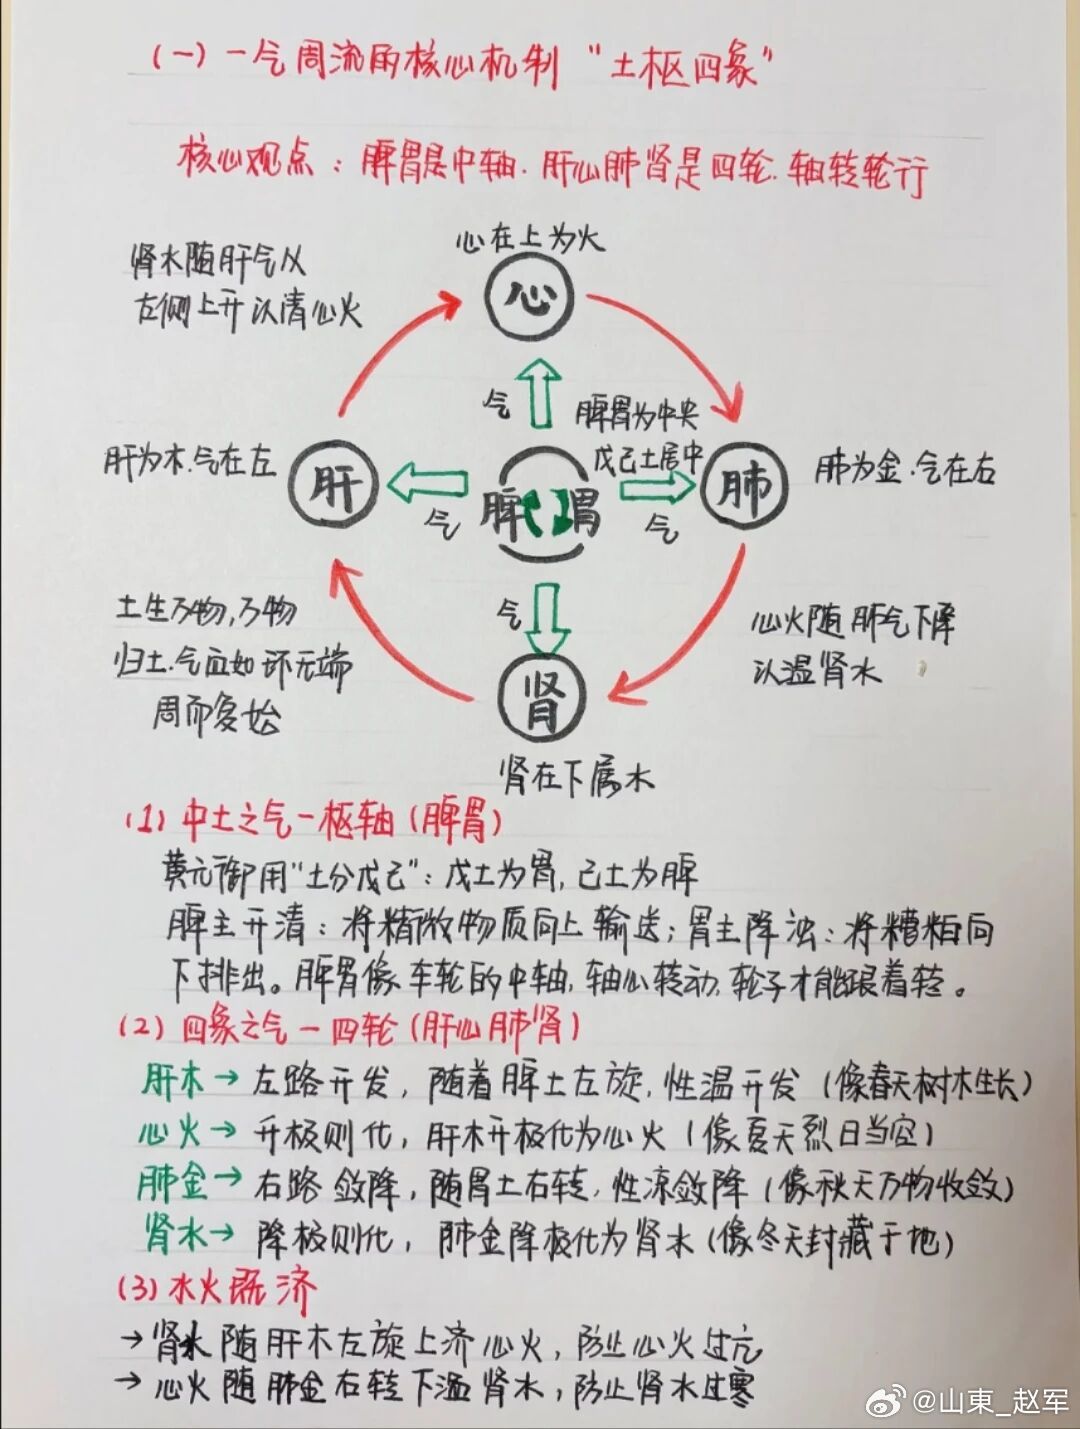 (一)一气周流的核心机制“土枢四象”
核心观点：脾胃是中轴.肝心肺肾是四轮.轴转轮行
心在上为火
肾水随肝气从
左侧上升以清心火
心
气
脾胃为中央
戊己土居中
肝为木.气在左
肝
脾胃
肺
肺为金.气在右
气
气
土生万物,万物
归土.气血如环无端
周而复始
气
心火随肺气下降
以温肾水
肾
肾在下属水
(1)中土之气一枢轴(脾胃)
黄元御用“土分戊己”:戊土为胃,己土为脾
脾主升清：将精微物质向上输送；胃主降浊：将糟粕向
下排出。脾胃像车轮的中轴,轴心转动,轮子才能跟着转。
(2)四象之气一四轮(肝心肺肾)
肝木→左路升发，随着脾土左旋,性温升发(像春天树木生长)
心火→升极则化，肝木升极化为心火(像夏天烈日当空)
肺金→右路敛降，随胃土右转,性凉敛降(像秋天万物收敛)
肾水→降极则化，肺金降极化为肾水(像冬天封藏于地)
(3)水火既济
→肾水随肝木左旋上济心火，防止心火过亢
→心火随肺金右转下温肾水，防止肾水过寒
@山東_赵军